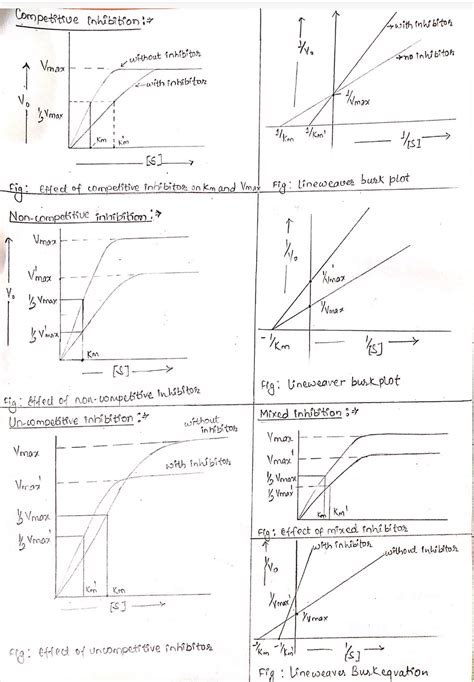 Competitive inhibition :→
Vmax
without inhibitor
with inhibitor
V₀
½ Vmax
Km
K'm
[S]
Fig : Effect of competitive inhibitor on Km and Vmax
with inhibitor
no inhibitor
1/V₀
1/Vmax
1/Km
1/Km'
1/[S]
Fig : Lineweaver burk plot
Non-competitive inhibition :→
Vmax
V'max
V₀
½ Vmax
½ V'max
Km
[S]
Fig : Effect of non-competitive Inhibitor
1/V₀
1/Vmax'
1/Vmax
-1/Km
1/[S]
Fig : Lineweaver burk plot
Un-competitive inhibition :→
without
inhibitor
with inhibitor
Vmax
Vmax'
½ Vmax
½ Vmax'
Km'
Km
[S]
Fig : effect of uncompetitive inhibitor
Mixed Inhibition :→
Vmax
Vmax'
½ Vmax
½ Vmax'
Km
Km'
Fig : Effect of mixed inhibitor
with inhibitor
without Inhibitor
1/V₀
1/Vmax'
1/Vmax
-1/Km
-1/Km'
1/[S]
Fig : Lineweaver Burk equation